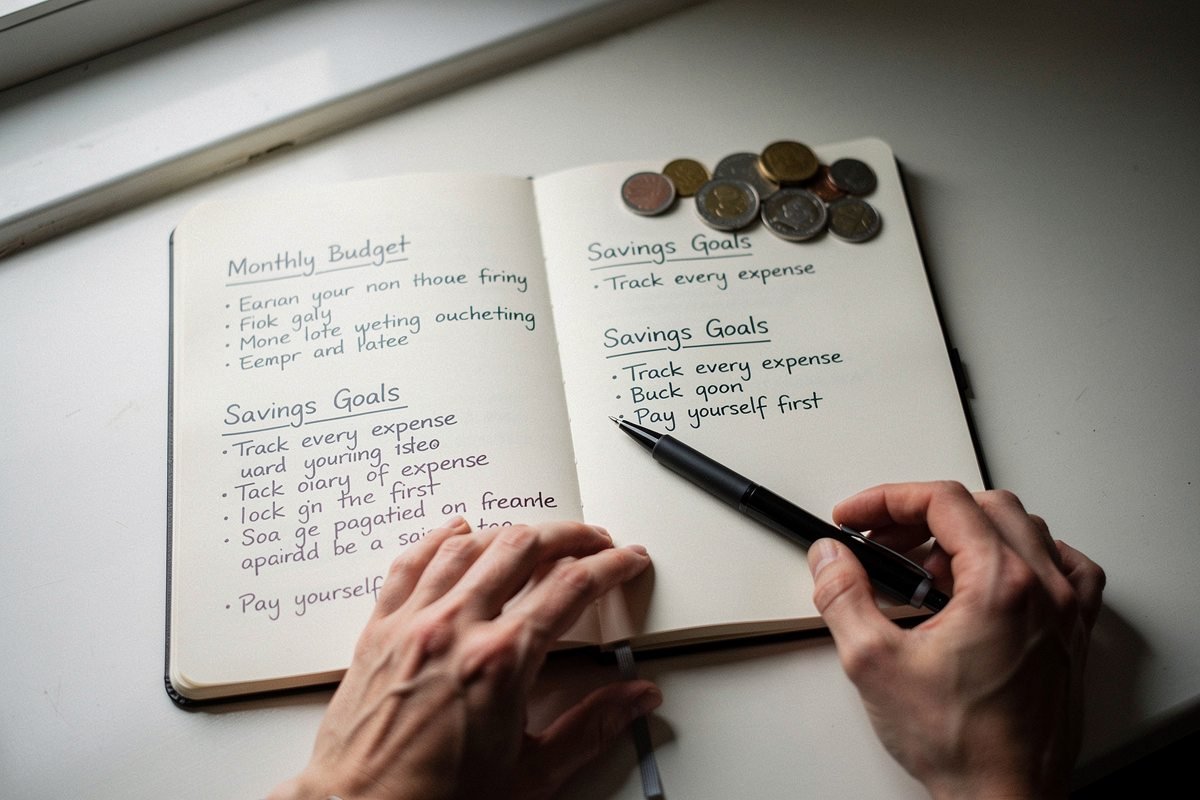 Monthly Budget
• Earıan your non thoae firiny
• Fiok galy
• Mone lote yeting oucheting
• Eempr and latee
Savings Goals
• Track every expense
uard youring isteo
• Tack oiary of expense
• lock gn the first
• Soa ge pagatied on freante
apairdd be a
• Pay yourself
Savings Goals
• Track every expense
Savings Goals
• Track every expense
• Buck qoon
• Pay yourself first